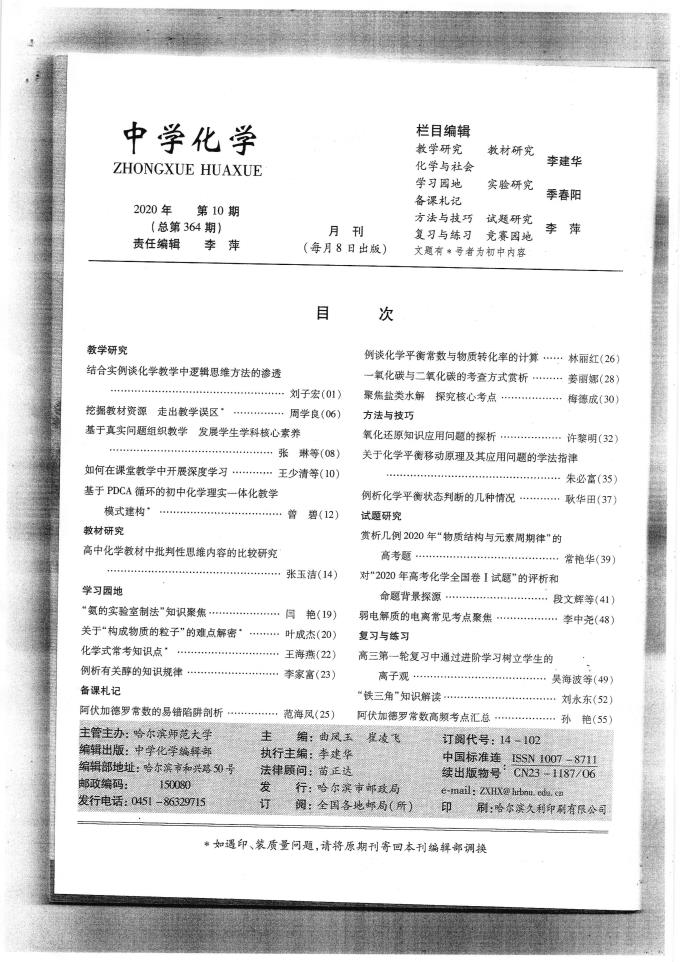 中学化学
ZHONGXUE HUAXUE
2020 年 第 10 期
(总第 364 期)
责任编辑 李 萍
月 刊
(每月 8 日出版)
栏目编辑
教学研究 教材研究
化学与社会
李建华
学习园地 实验研究
备课札记
季春阳
方法与技巧 试题研究
复习与练习 竞赛园地
李 萍
文题有 * 号者为初中内容
目 次
教学研究
结合实例谈化学教学中逻辑思维方法的渗透
…………………………………… 刘子宏(01)
挖掘教材资源 走出教学误区* ………… 周学良(06)
基于真实问题组织教学 发展学生学科核心素养
………………………………… 张 琳等(08)
如何在课堂教学中开展深度学习 ……… 王少清等(10)
基于 PDCA 循环的初中化学理实一体化教学
模式建构* ………………………… 曾 碧(12)
教材研究
高中化学教材中批判性思维内容的比较研究
…………………………………… 张玉洁(14)
学习园地
“氨的实验室制法”知识聚焦 ……………… 闫 艳(19)
关于“构成物质的粒子”的难点解密* ……… 叶成杰(20)
化学式常考知识点* ……………………… 王海燕(22)
例析有关醇的知识规律 …………………… 李家富(23)
备课札记
阿伏加德罗常数的易错陷阱剖析 ………… 范海凤(25)
例谈化学平衡常数与物质转化率的计算 …… 林丽红(26)
一氧化碳与二氧化碳的考查方式赏析 ……… 姜丽娜(28)
聚焦盐类水解 探究核心考点 …………… 梅德成(30)
方法与技巧
氧化还原知识应用问题的探析 …………… 许黎明(32)
关于化学平衡移动原理及其应用问题的学法指津
…………………………………… 朱必富(35)
例析化学平衡状态判断的几种情况 ………… 耿华田(37)
试题研究
赏析几例 2020 年“物质结构与元素周期律”的
高考题 ……………………………… 常艳华(39)
对“2020 年高考化学全国卷Ⅰ试题”的评析和
命题背景探源 ……………………… 段文辉等(41)
弱电解质的电离常见考点聚焦 …………… 李中尧(48)
复习与练习
高三第一轮复习中通过进阶学习树立学生的
离子观 ……………………………… 吴海波等(49)
“铁三角”知识解读 ………………………… 刘永东(52)
阿伏加德罗常数高频考点汇总 …………… 孙 艳(55)
主管主办: 哈尔滨师范大学
编辑出版: 中学化学编辑部
编辑部地址: 哈尔滨市和兴路 50 号
邮政编码: 150080
发行电话: 0451 - 86329715
主 编: 曲凤玉 崔凌飞
执行主编: 李建华
法律顾问: 苗正达
发 行: 哈尔滨市邮政局
订 阅: 全国各地邮局(所)
订阅代号: 14 - 102
中国标准连续出版物号: ISSN 1007 - 8711
CN23 - 1187/O6
e-mail: ZXHX@hrbnu.edu.cn
印 刷: 哈尔滨久利印刷有限公司
* 如遇印、装质量问题,请将原期刊寄回本刊编辑部调换